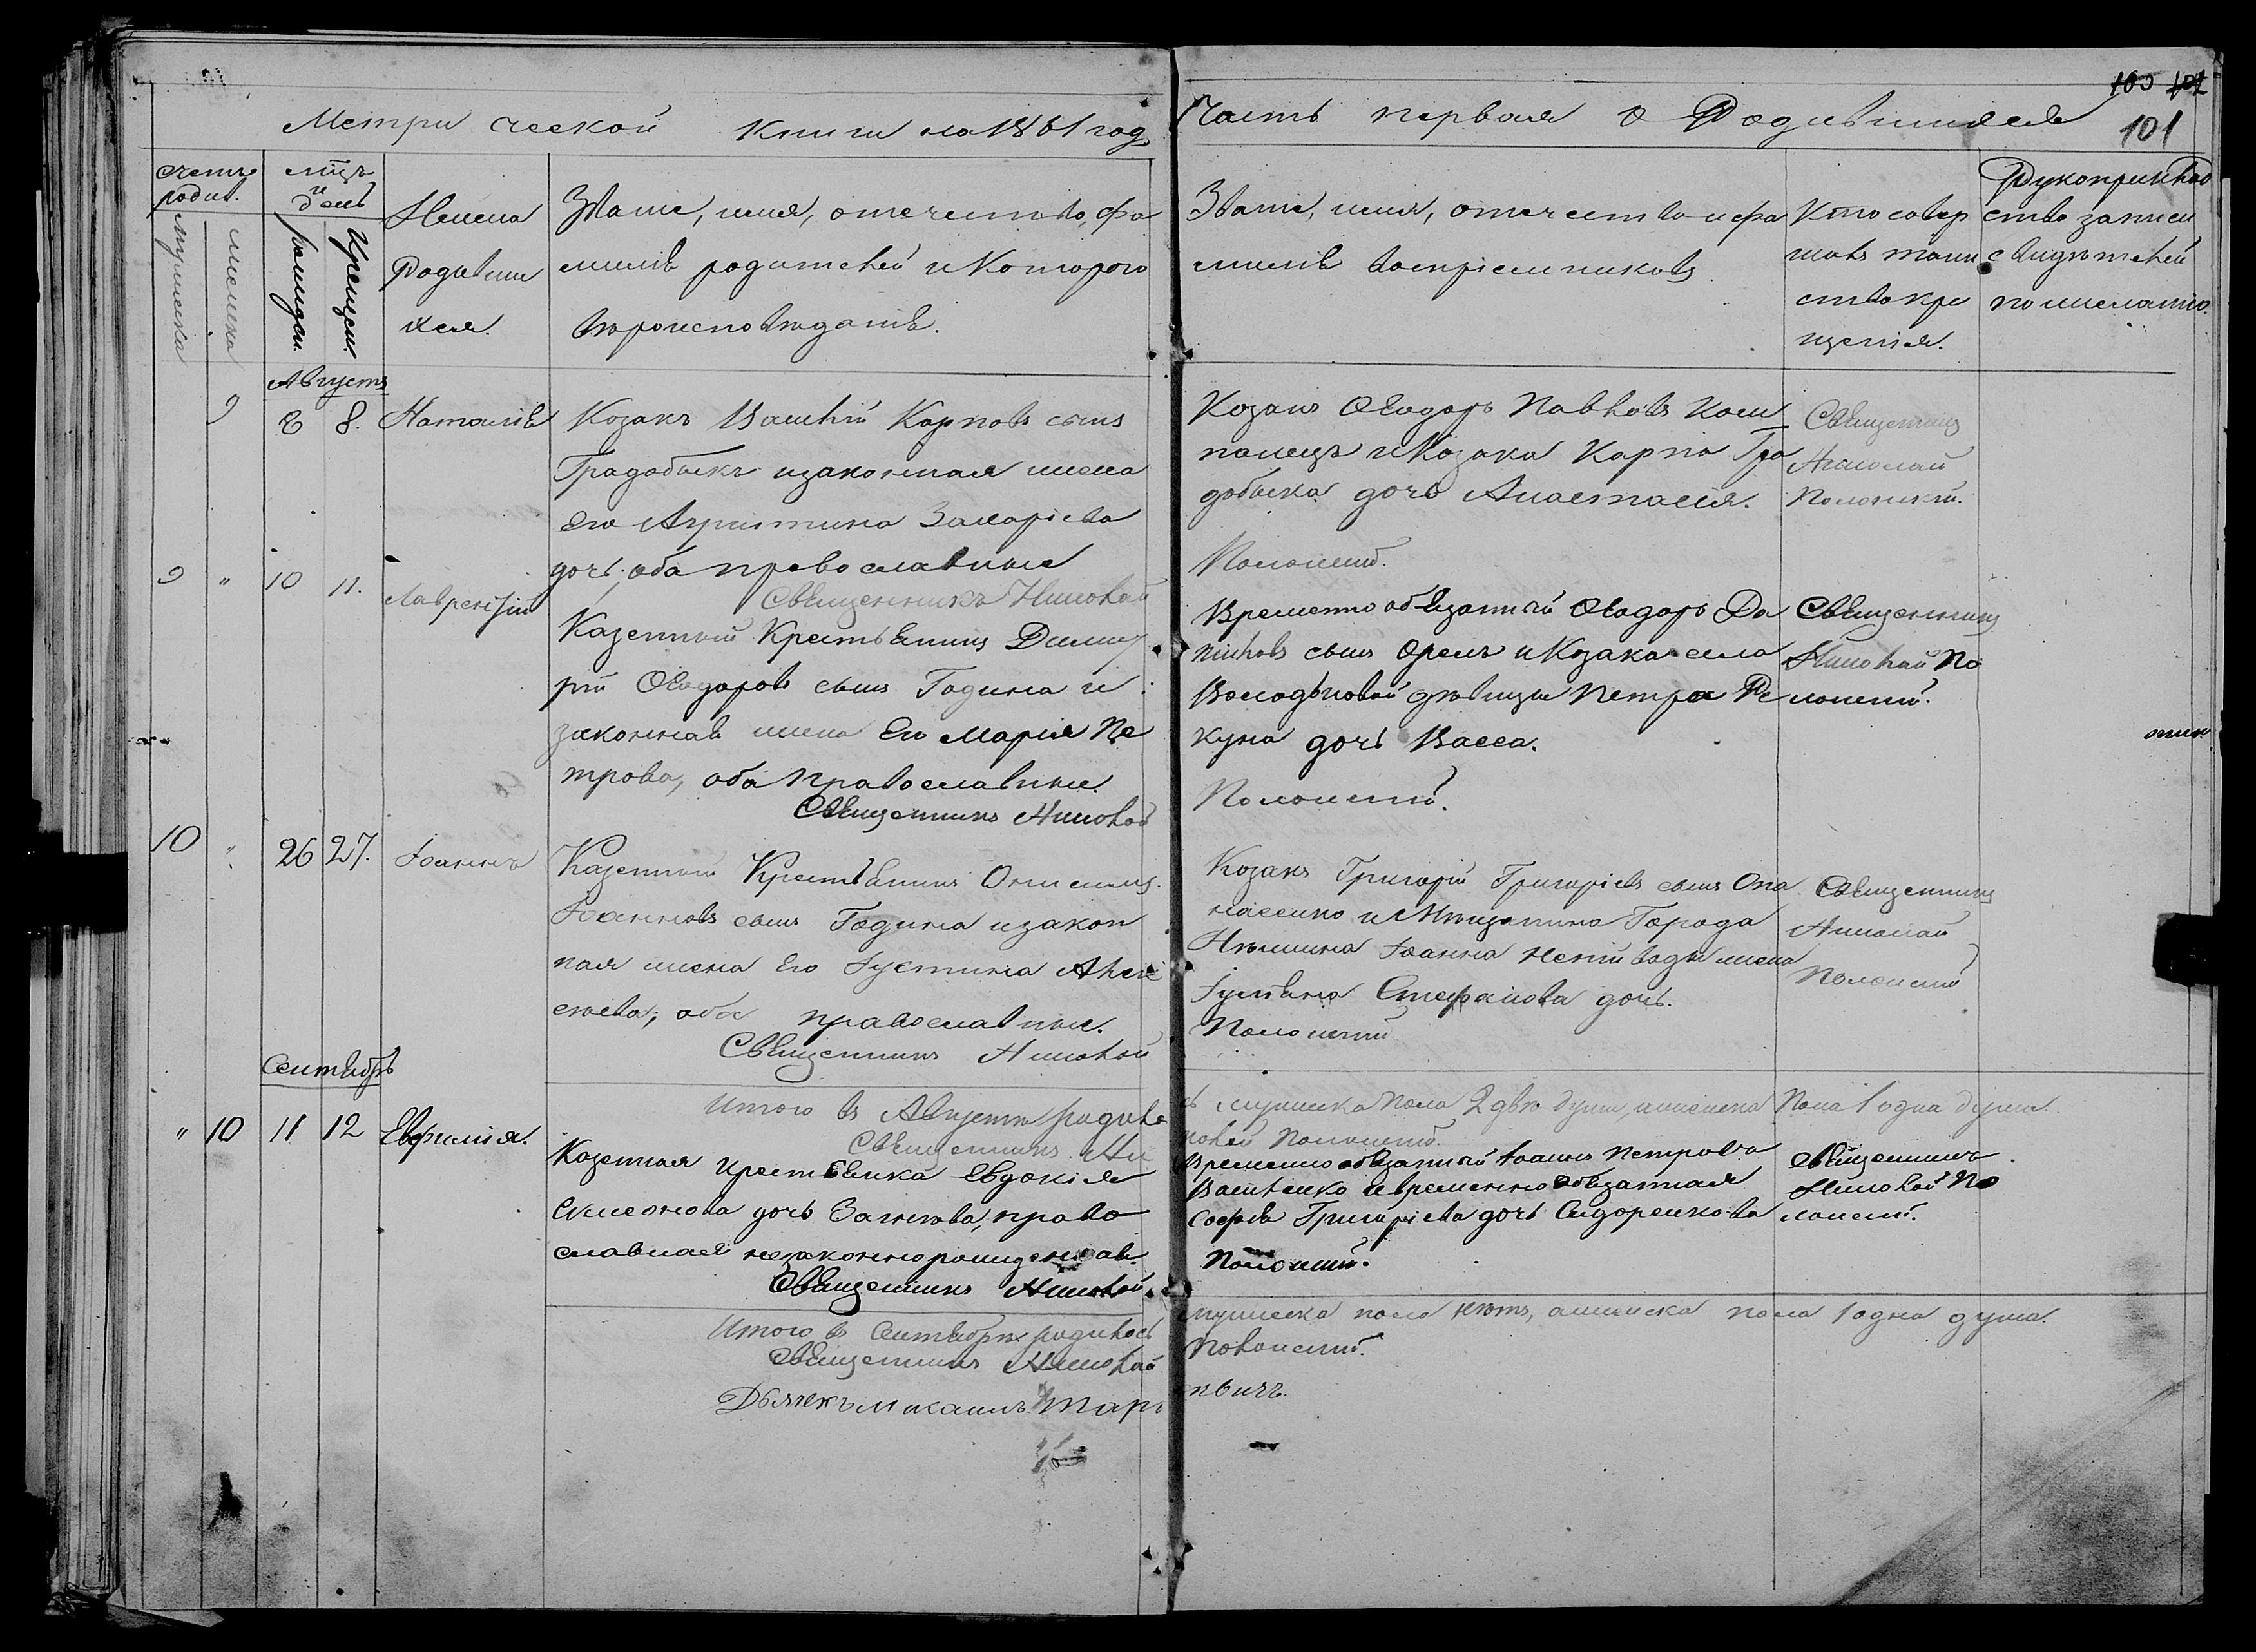 100 101
Метри ческой Книги на 1861 год Часть первая о Родившихся 101
счетъ родив.
мужеска
женска
мцъ и день
рожден.
Крещен.
Имена
Родивши
хся.
Званіе, имя, отечество, фа
милія родителей и Которого
вероисповѣданія.
Званіе, имя, отечество и фа
милія воспріемниковъ
Кто совер
шалъ таин
ство кре
щенія.
Рукоприклад
ство записи
свидѣтелей
по желанію.
Августъ
9 8 8. Наталія
Козакъ Василій Карповъ сынъ
Градобыкъ и законная жена
его Агриппина Захаріева
дочь; оба православные
Священникъ Николай
Козакъ Ѳеодоръ Павловъ Кош
панецъ и Козака Карпа Гра
добыка дочь Анастасія.
Полонскій.
Священникъ
Николай
Полонскій.
9 " 10 11. Лаврентій
Казенный Крестьянинъ Дими
рій Ѳеодоровъ сынъ Година и
законная жена Его Марія Пе
трова, оба православные.
Священникъ Николай
Временно обязанный Ѳеодоръ Да
ніиловъ сынъ Орелъ и Козака села
Володьковой дѣвицы Петра Ре
куна дочь Васса.
Полонскій.
Священникъ
Николай По
лонскій.
10 " 26 27. Іоаннъ
Казенный Крестьянинъ Онисимъ
Іоанновъ сынъ Година и закон
ная жена Его Іустина Алек
сѣева, оба православные.
Священникъ Николай
Козакъ Григорій Григоріевъ сынъ Опа
нассенко и Мѣщанина Города
Нѣжина Іоанна жена
Іустина Стефанова дочь.
Полонскій
Священникъ
Николай
Полонскій
Итого въ Августѣ родилось мужеска пола 2 двѣ души, а женска пола 1 одна душа.
Священникъ Николай Полонскій.
Сентябрь
" 10 11 12 Евфимія.
Казенная крестьянка Евдокія
Симеонова дочь право
славная незаконнорожденная.
Священникъ Николай
Временно обязанный Іоаннъ Петровъ
Василенко и временно обязанная
Софія Григоріева дочь Сидоренкова
Полонскій.
Священникъ
Николай По
лонскій.
Итого въ Сентябрѣ родилось мужеска пола нѣтъ, а женска пола 1 одна душа.
Священникъ Николай Полонскій.
Дьячекъ Михаилъ